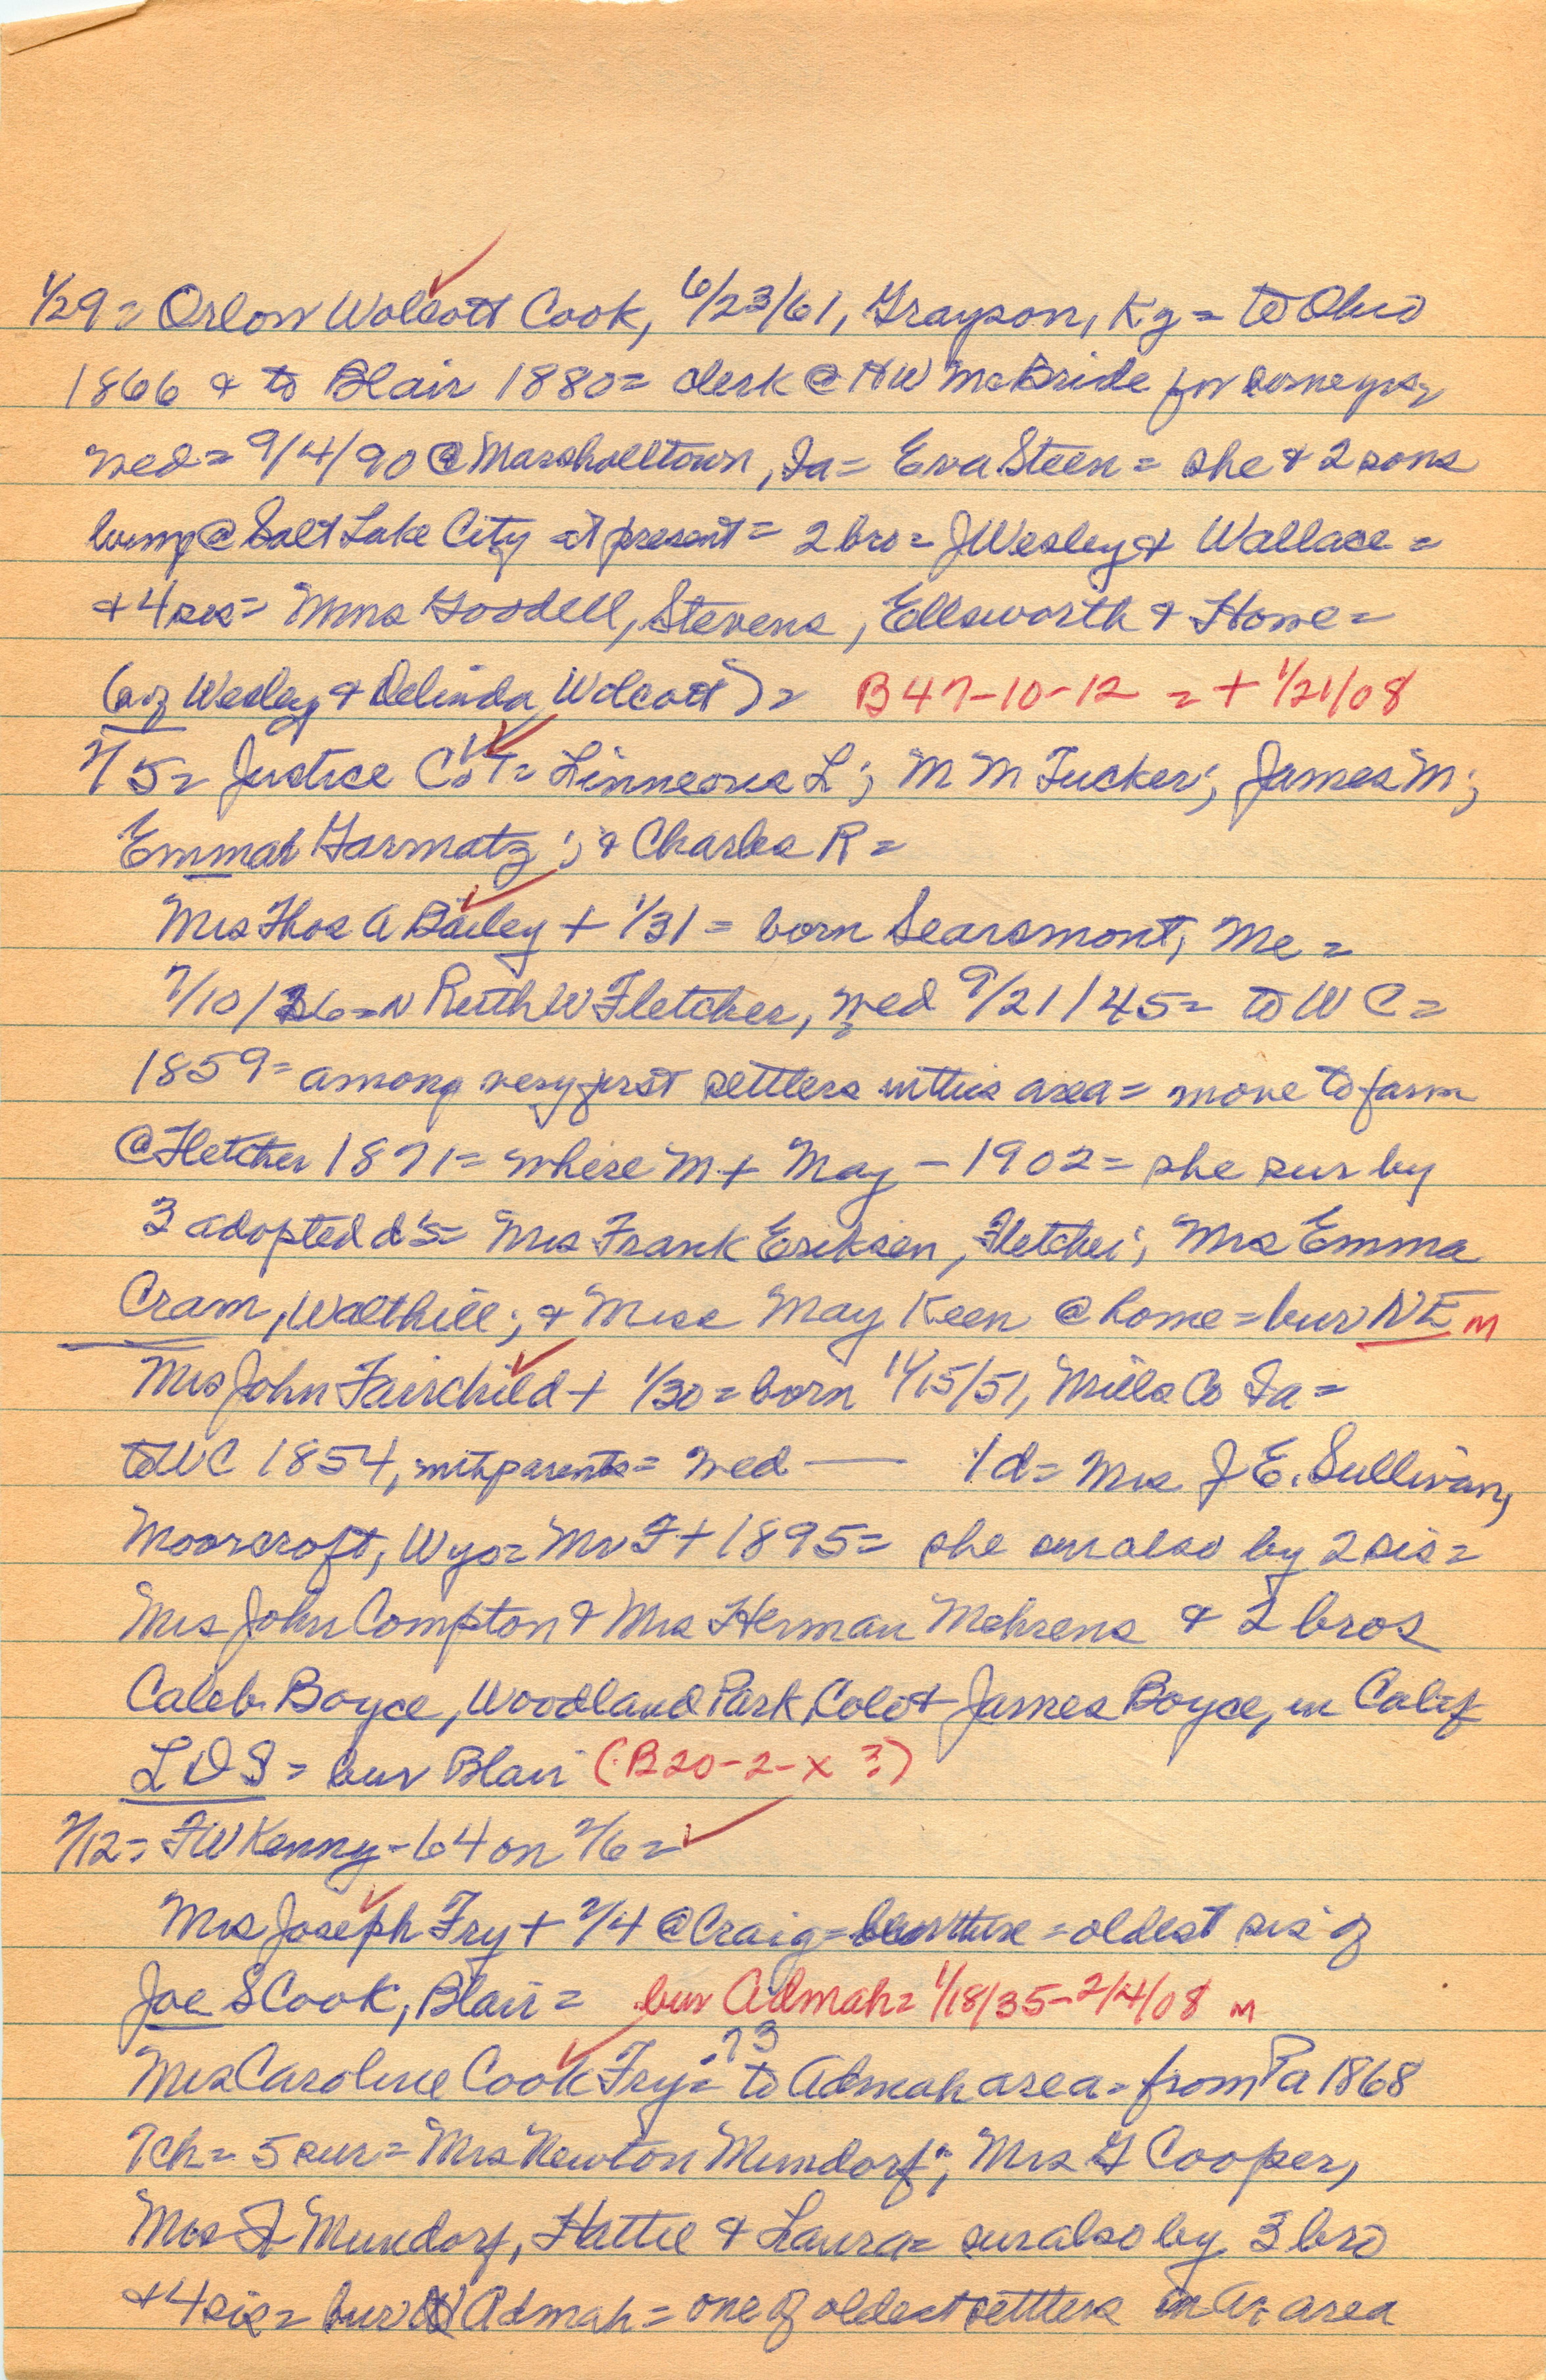 1/29 = Orlow Wolcott Cook, 6/23/61, Grayson, Ky = to Ohio
1866 & to Blair 1880 = clerk @ HW McBride for some yrs =
wed = 9/4/90 @ Marshalltown, Ia = Eva Steen = she & 2 sons
living @ Salt Lake City at present = 2 bro = J Wesley & Wallace =
+ 4 sis = Mmes Goodell, Stevens, Ellsworth & Howe =
(s of Wesley & Delinda Wolcott) = B 47-10-12 = + 1/21/08
2/5 = Justice Ct = Linneous L; M M Tucker; James M;
Emma Garmatz; & Charles R =
Mrs Thos A Bailey + 1/31 = born Searsmont, Me =
7/10/26 = N Ruth W Fletcher, wed 9/21/45 = to W C =
1859 = among very first settlers in this area = move to farm
@ Fletcher 1871 = where M + May - 1902 = she sur by
3 adopted d's = Mrs Frank Eriksen, Fletcher; Mrs Emma
Cram, Walthill; & Miss May Keen @ home = bur NE M
Mrs John Fairchild + 1/30 = born 11/15/51, Mills Co Ia =
to WC 1854, with parents = wed — 1 d = Mrs J E. Sullivan,
Moorcroft, Wyo = Mr F + 1895 = she sur also by 2 sis =
Mrs John Compton & Mrs Herman Mehrens & 2 bros
Caleb Boyce, Woodland Park, Colo & James Boyce, in Calif
LDS = bur Blair (B20-2-x 3)
2/12 = FW Kenny - 64 on 2/6 =
Mrs Joseph Fry + 2/4 @ Craig = bur there = oldest sis of
Joe S Cook, Blair = bur Admah = 1/18/35 - 2/4/08 M
Mrs Caroline Cook Fry = 73 to Admah area = from Pa 1868
7ch = 5 sur = Mrs Newton Mundorf; Mrs G Cooper,
Mrs A Mundorf, Hattie & Laura = sur also by 3 bro
+ 4 sis = bur Admah = one of oldest settlers in area